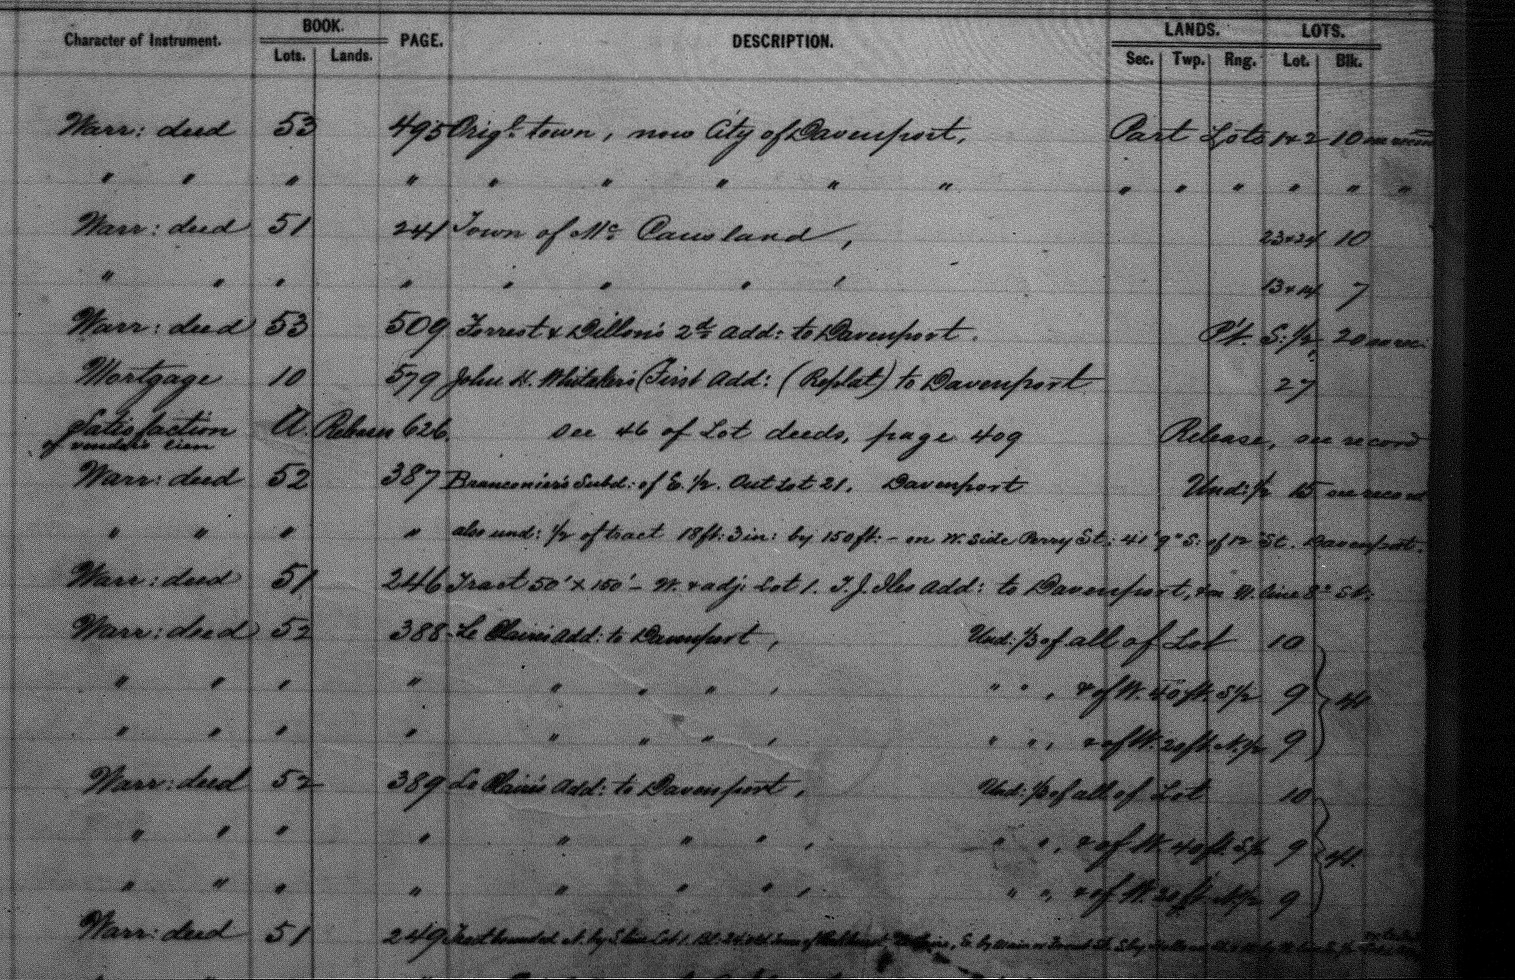 Character of Instrument. BOOK. PAGE. DESCRIPTION. LANDS. LOTS.
Lots. Lands. Sec. Twp. Rng. Lot. Blk.
Warr: deed 53 495 Orig'l town, now City of Davenport, Part Lots 1&2 10 see record
" " " " " " " " " " " " " " "
Warr: deed 51 241 Town of Mc Causland, 23&24 10
" " " " " " " " 13&14 7
Warr: deed 53 509 Forrest & Dillon's 2d Add: to Davenport. P't. S. 1/2 20 see rec.
Mortgage 10 579 John H. Whitaker's (First Add: (Replat) to Davenport 27
Satisfaction A. Releases 626. see 46 of Lot deeds, page 409 Release, see record
of vendor's lien
Warr: deed 52 387 Branconier's Subd: of E. 1/2. Out Lot 21. Davenport Und: 1/2 15 see record
" " " " also und: 1/2 of tract 18 ft: 3 in: by 150 ft: - on W. side Perry St: 41' 9" S: of 12" St. Davenport.
Warr: deed 51 246 Tract 50' x 150' - W. & adj: Lot 1. T. J. Iles Add: to Davenport, & on N. line 8" St.
Warr: deed 52 388 Le Claire's Add: to Davenport, Und: 1/3 of all of Lot 10
" " " " " " " , " " , & of W. 40 ft. S 1/2 9 41
" " " " " " " , " " , & of W. 20 ft. N. 1/2 9
Warr: deed 52 389 Le Claire's Add: to Davenport, Und: 1/3 of all of Lot 10
" " " " " " " , " " , & of W. 40 ft. S 1/2 9 41.
" " " " " " " , " " , & of W. 20 ft. N 1/2 9
Warr: deed 51 249 Tract bounded N. by S. line Lot 1. Bl. E. by Main or Front St. S. by